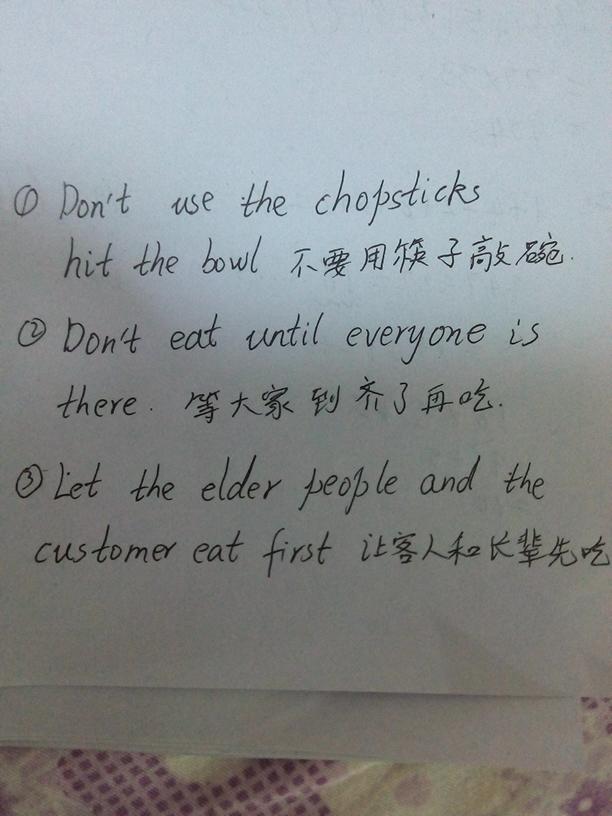 ① Don't use the chopsticks
hit the bowl 不要用筷子敲碗.
② Don't eat until everyone is
there. 等大家到齐了再吃.
③ Let the elder people and the
customer eat first 让客人和长辈先吃